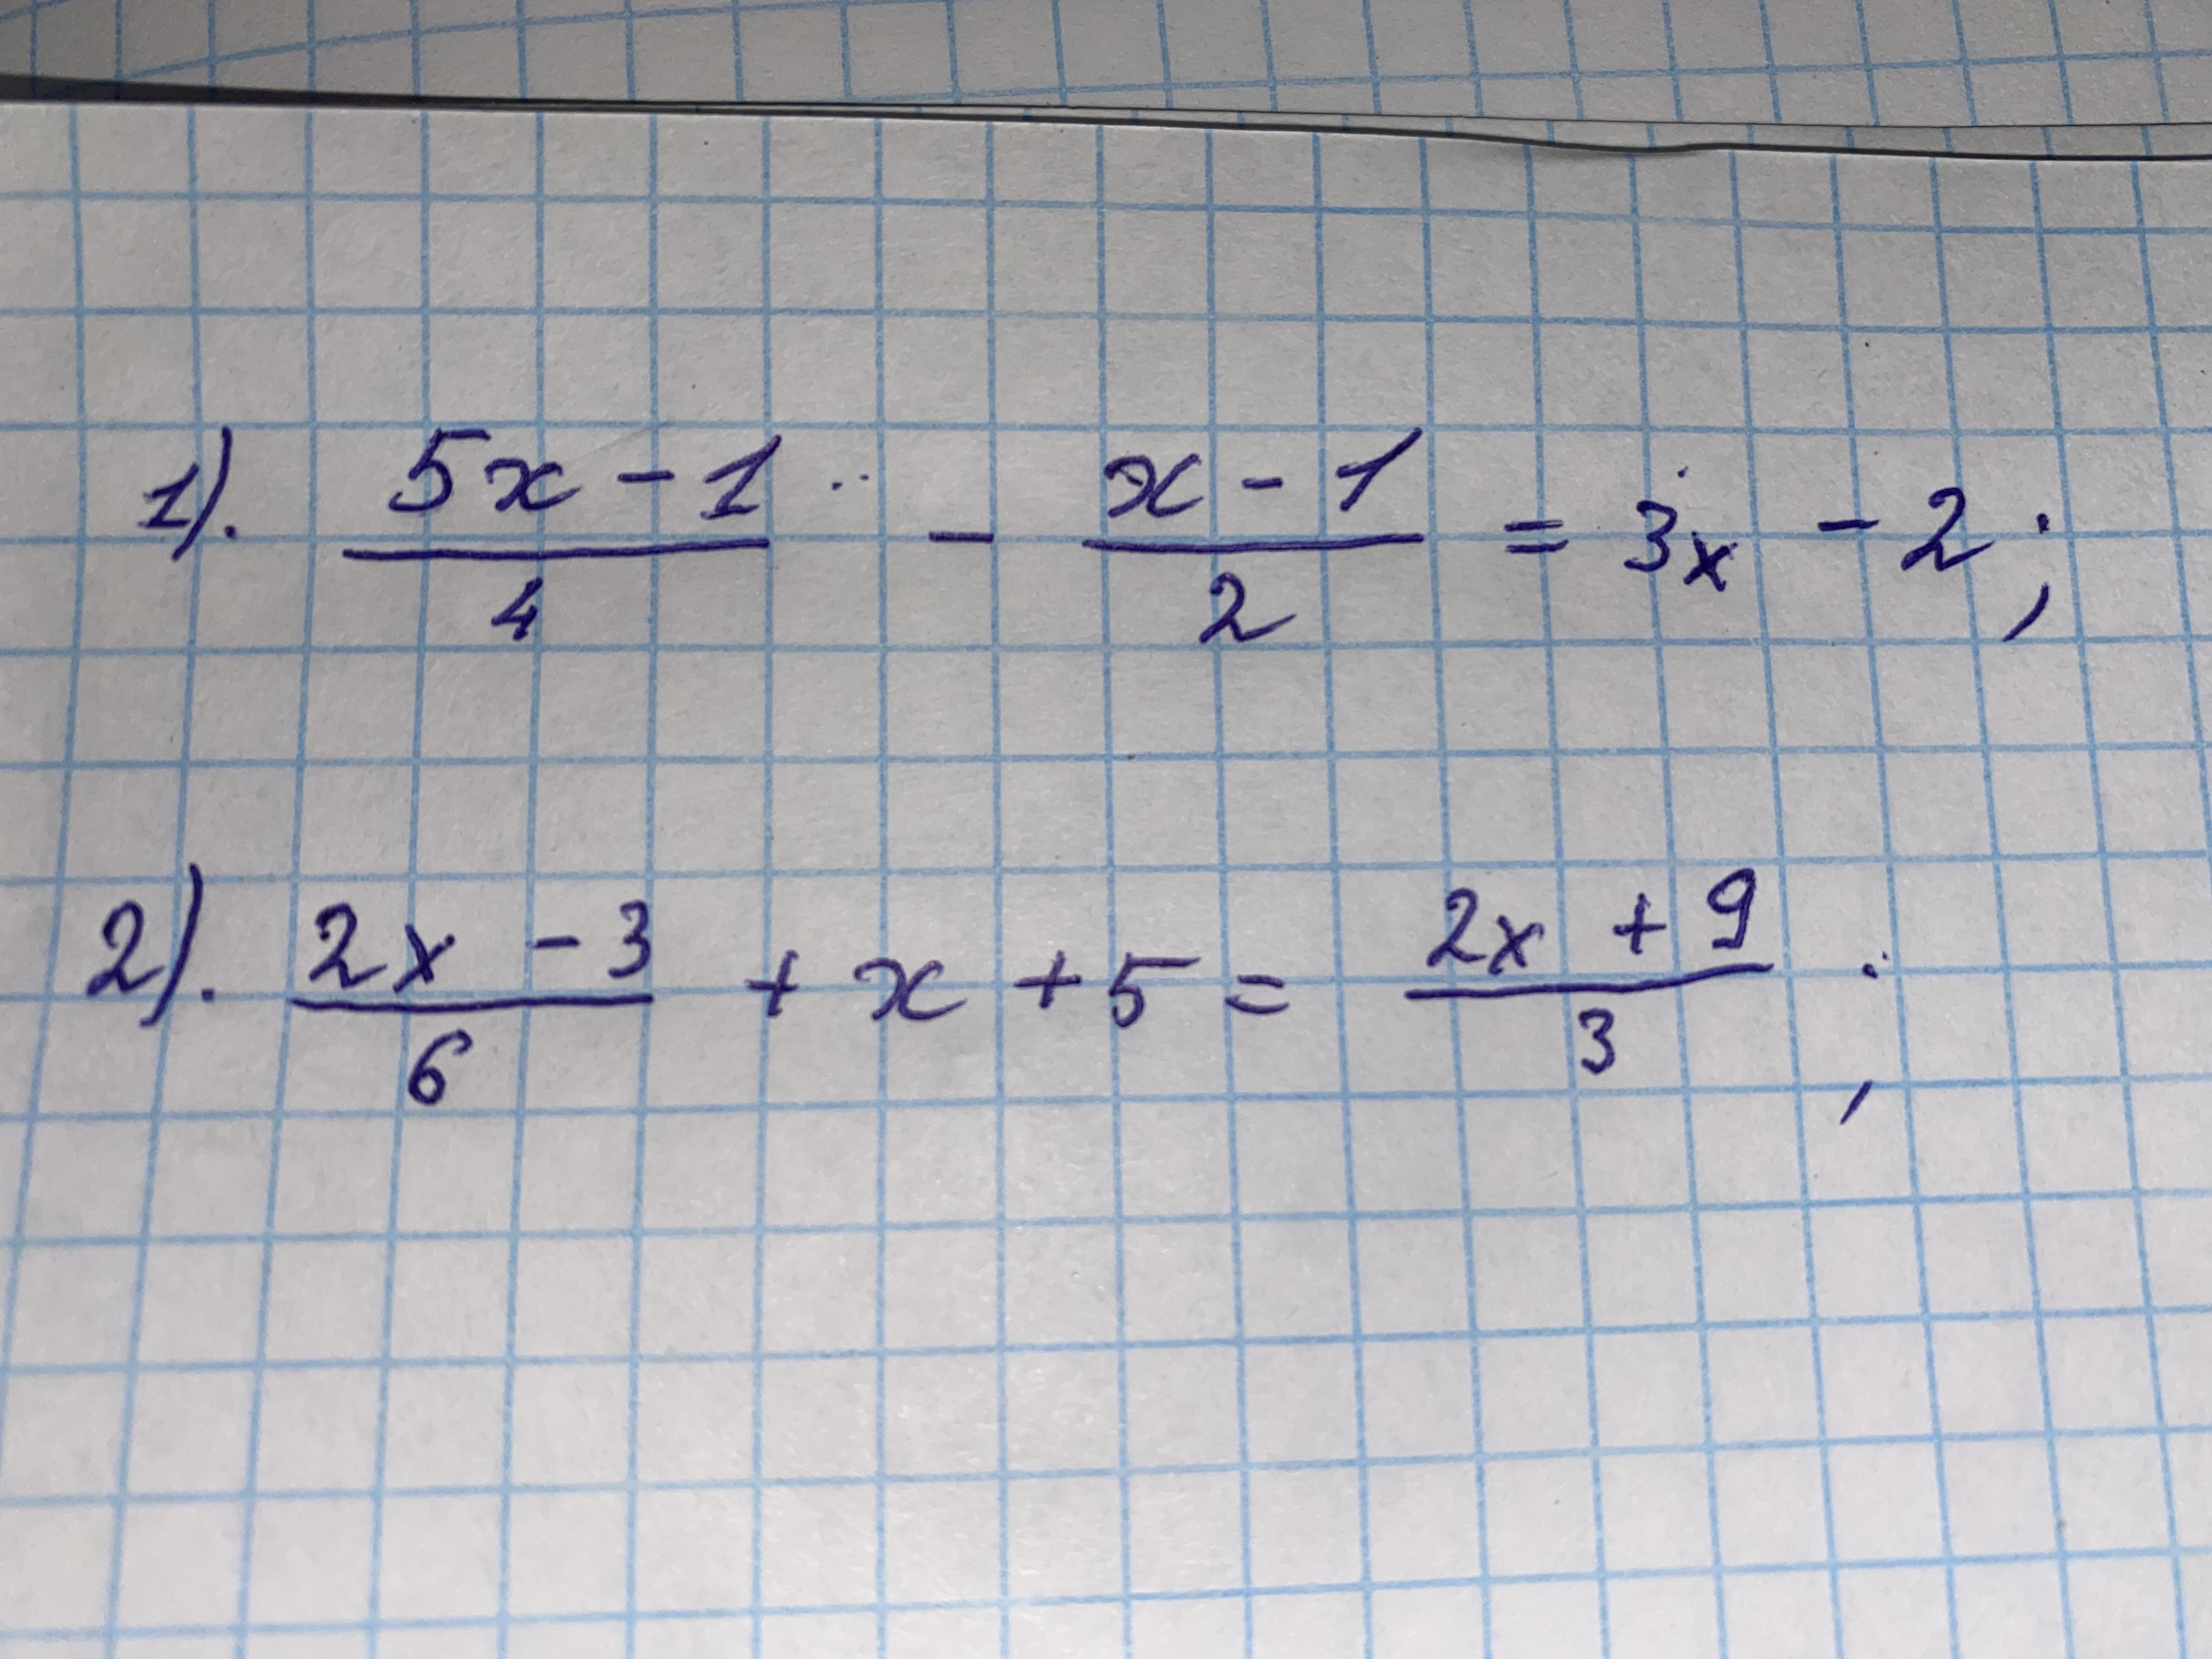 1). (5x - 1)/4 - (x - 1)/2 = 3x - 2;
2). (2x - 3)/6 + x + 5 = (2x + 9)/3;